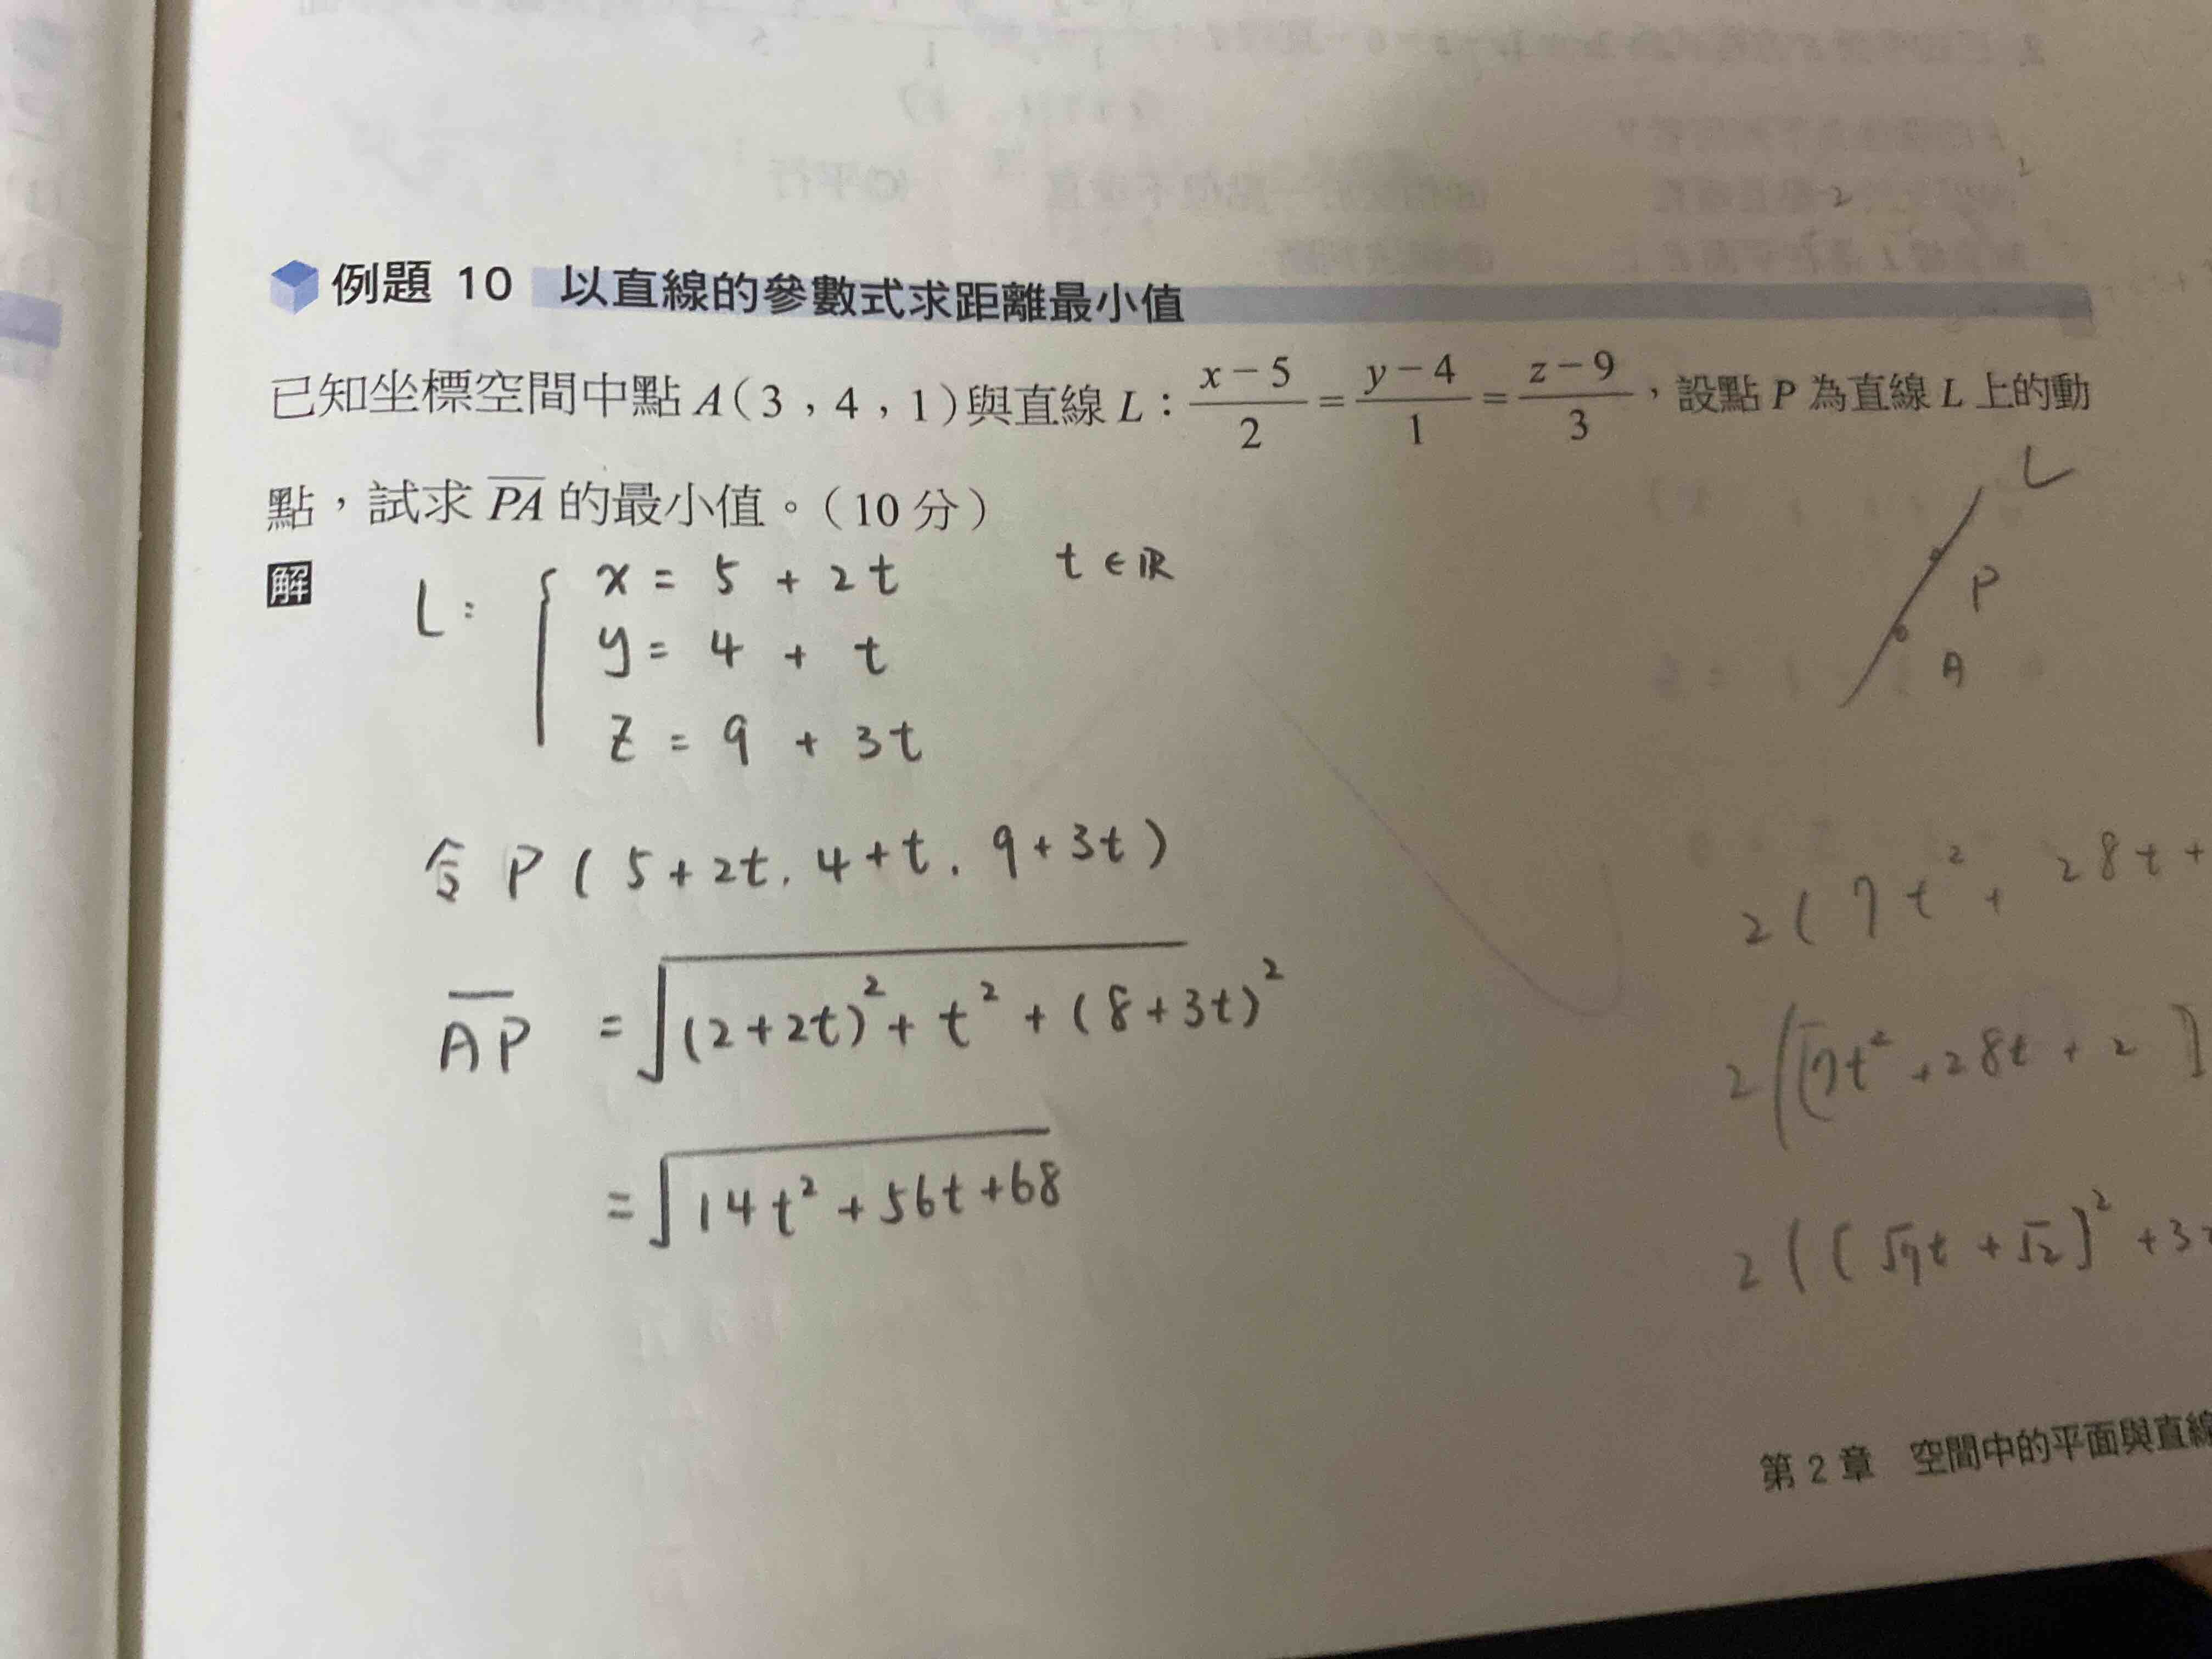 例題 10 以直線的參數式求距離最小值
已知坐標空間中點 A(3,4,1)與直線 L:\frac{x-5}{2}=\frac{y-4}{1}=\frac{z-9}{3},設點 P 為直線 L 上的動
點,試求 \overline{PA} 的最小值。(10 分)
解
L: { x = 5 + 2t t ∈ ℝ
y = 4 + t
z = 9 + 3t
L
P
A
令 P ( 5+2t, 4+t, 9+3t )
2 ( 7t² + 28t +
\overline{AP} = √(2+2t)² + t² + (8+3t)²
2 ( [7t² + 28t + 2 ]
= √14t² + 56t + 68
2 ( ( √7t + √2 ]² + 3
第 2 章 空間中的平面與直線